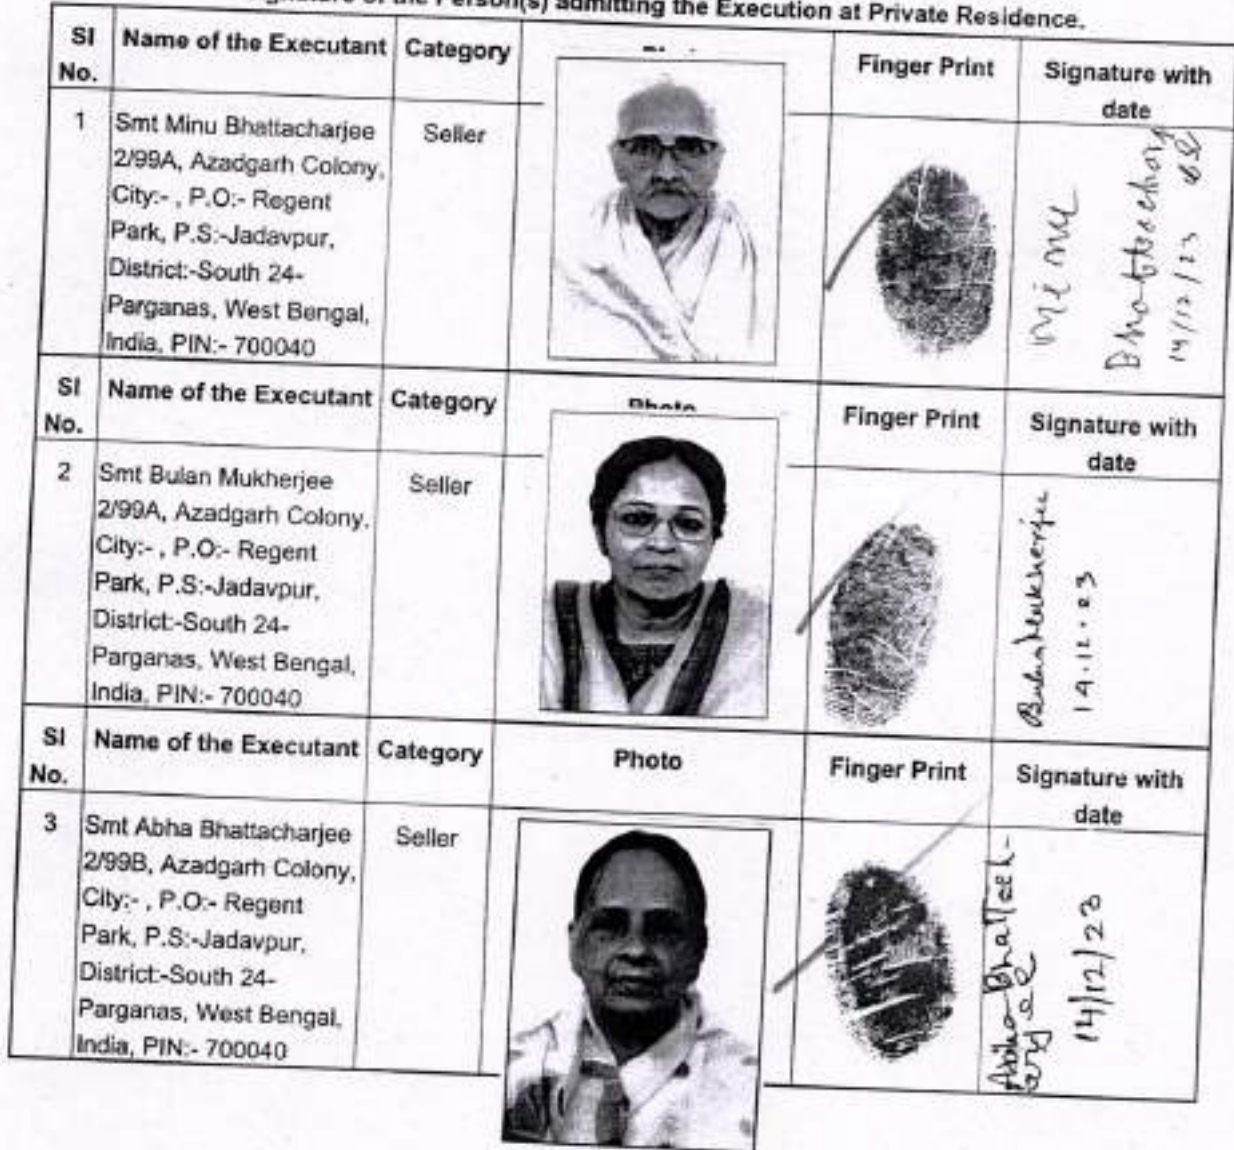 Signature of the Person(s) admitting the Execution at Private Residence.
Sl No. Name of the Executant Category Finger Print Signature with date
1 Smt Minu Bhattacharjee Seller
2/99A, Azadgarh Colony,
City:- , P.O:- Regent
Park, P.S:-Jadavpur,
District:-South 24-
Parganas, West Bengal,
India, PIN:- 700040
Minu
Bhattacharjee
14/12/23
Sl No. Name of the Executant Category Photo Finger Print Signature with date
2 Smt Bulan Mukherjee Seller
2/99A, Azadgarh Colony,
City:- , P.O:- Regent
Park, P.S:-Jadavpur,
District:-South 24-
Parganas, West Bengal,
India, PIN:- 700040
Bulan Mukherjee
14.12.23
Sl No. Name of the Executant Category Photo Finger Print Signature with date
3 Smt Abha Bhattacharjee Seller
2/99B, Azadgarh Colony,
City:- , P.O:- Regent
Park, P.S:-Jadavpur,
District:-South 24-
Parganas, West Bengal,
India, PIN:- 700040
14/12/23